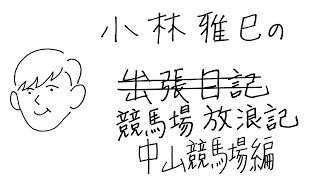 小林雅巳の
出張日記
競馬場放浪記
中山競馬場編